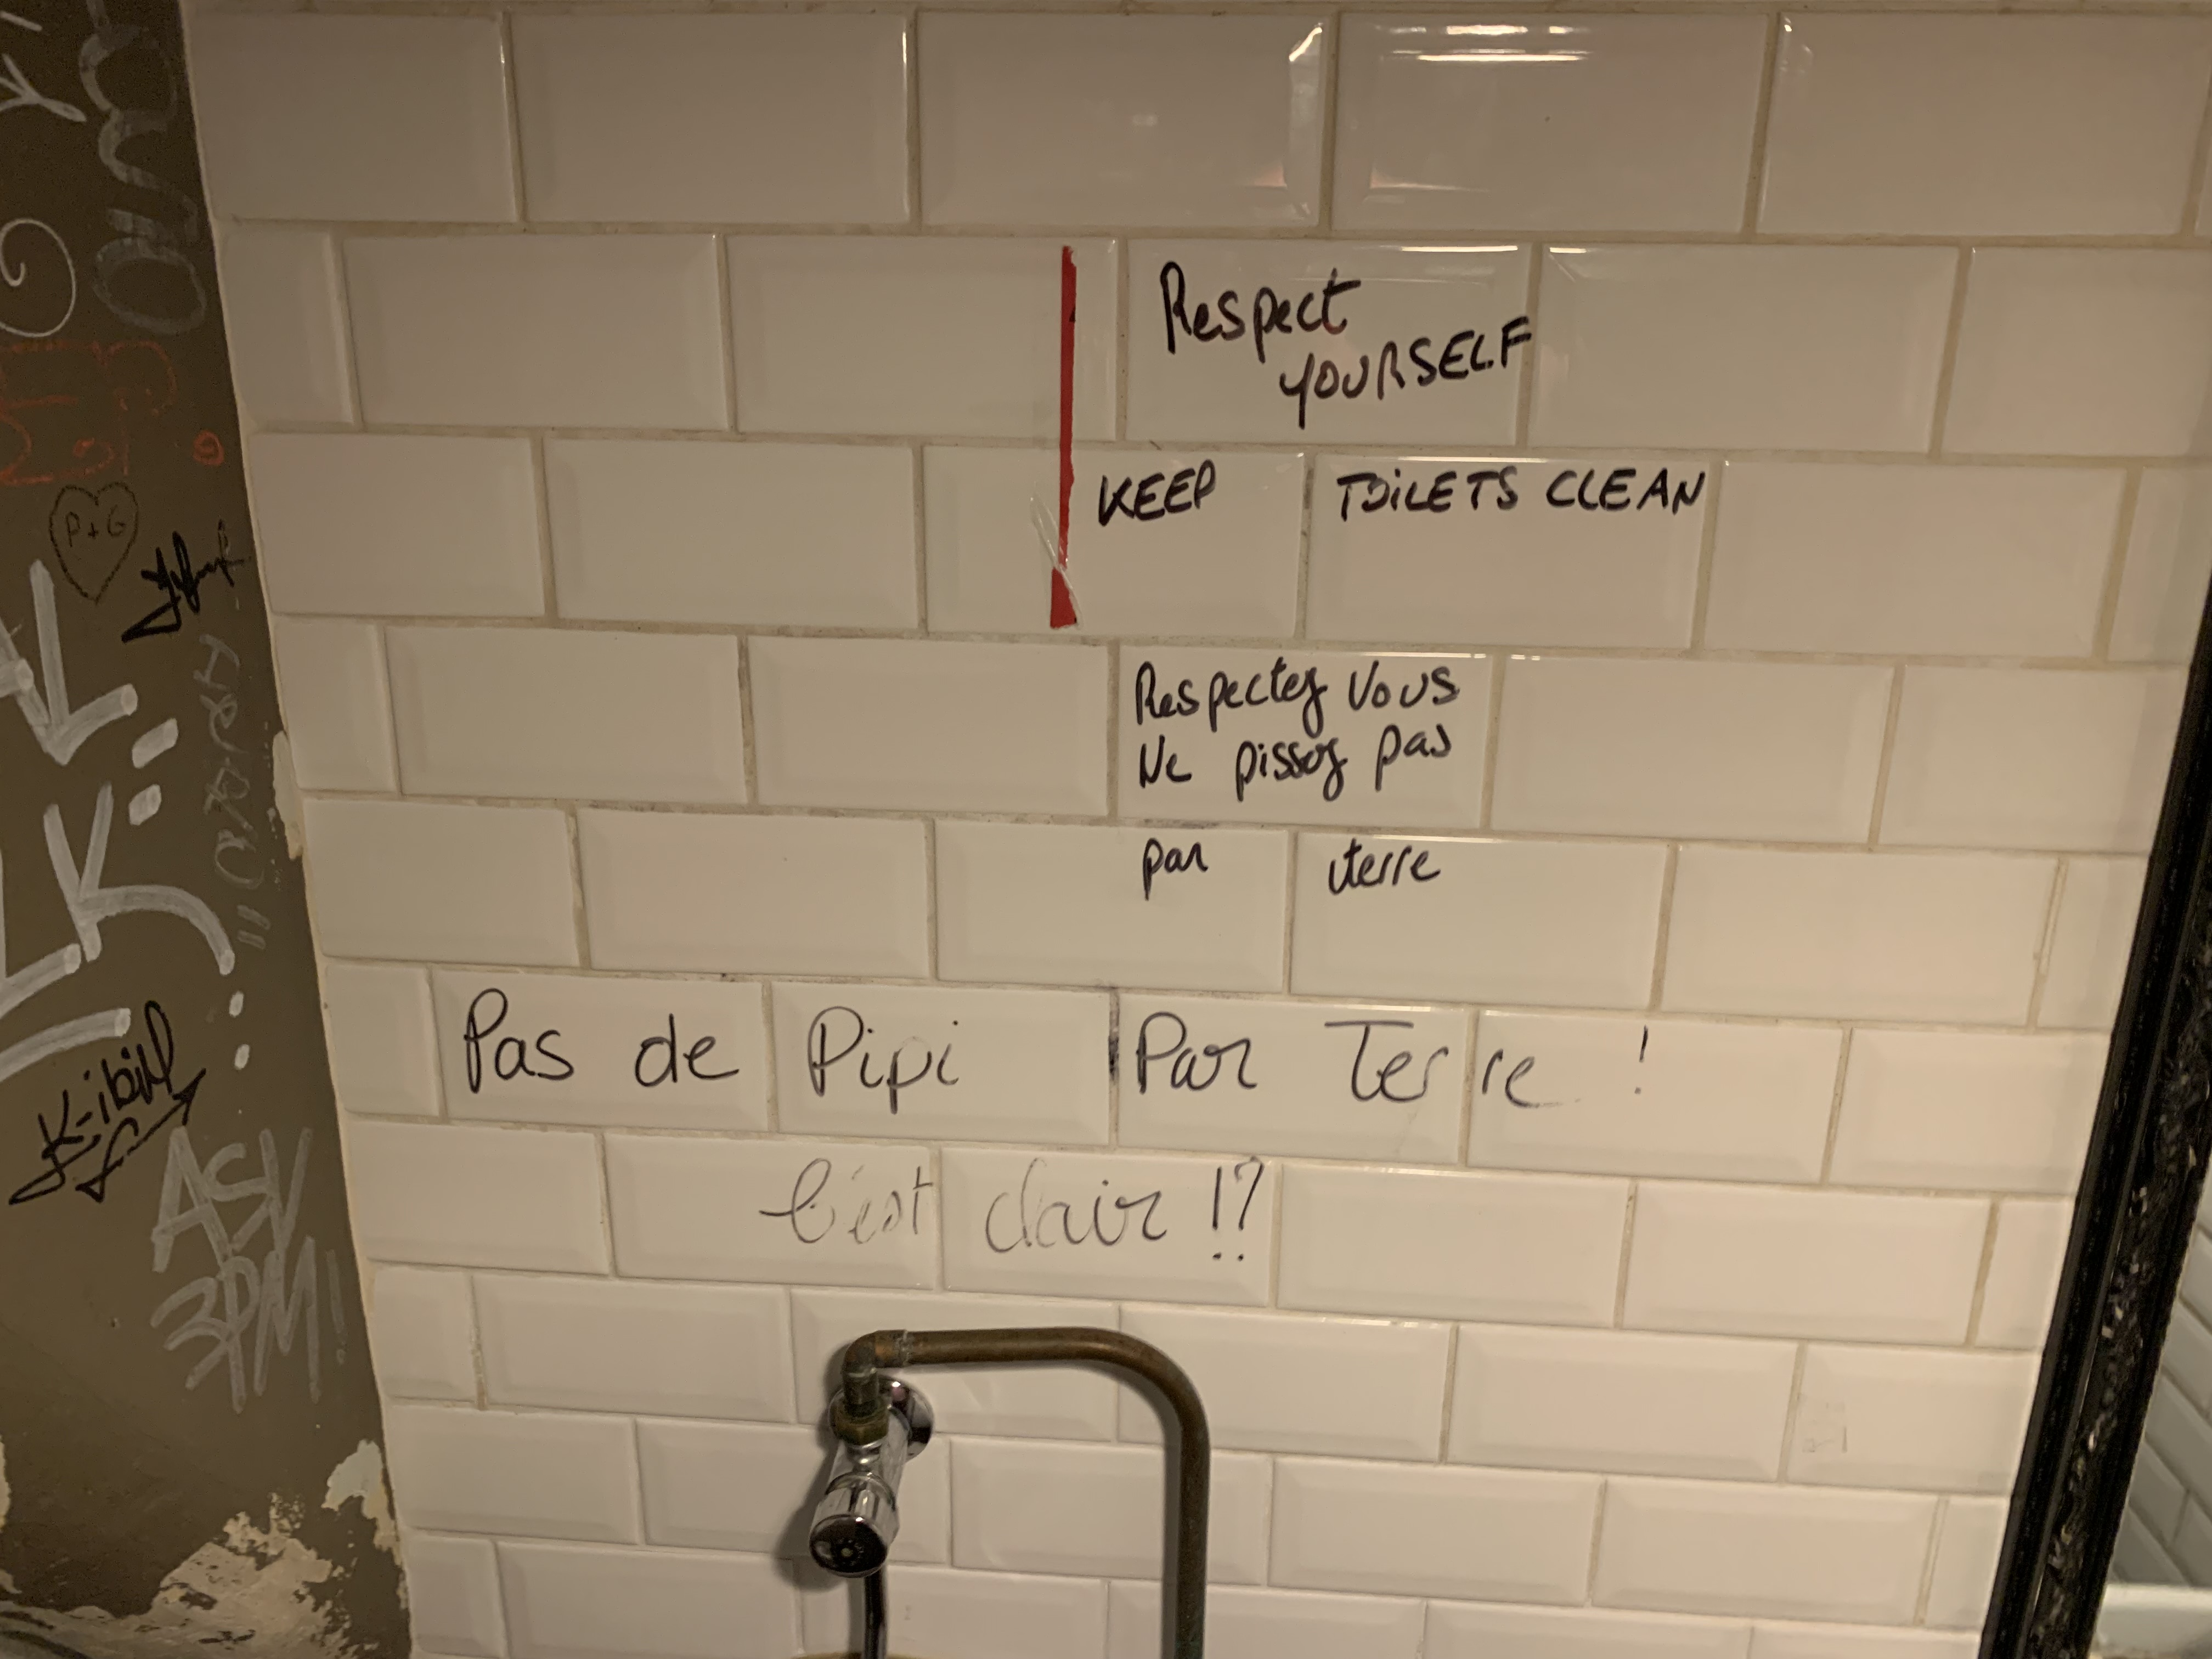 Respect
YOURSELF
KEEP TOILETS CLEAN
Respectez Vous
Ne pissez pas
par terre
Pas de Pipi Par Terre !
C'est clair !?
P+G
ASV
3PM!